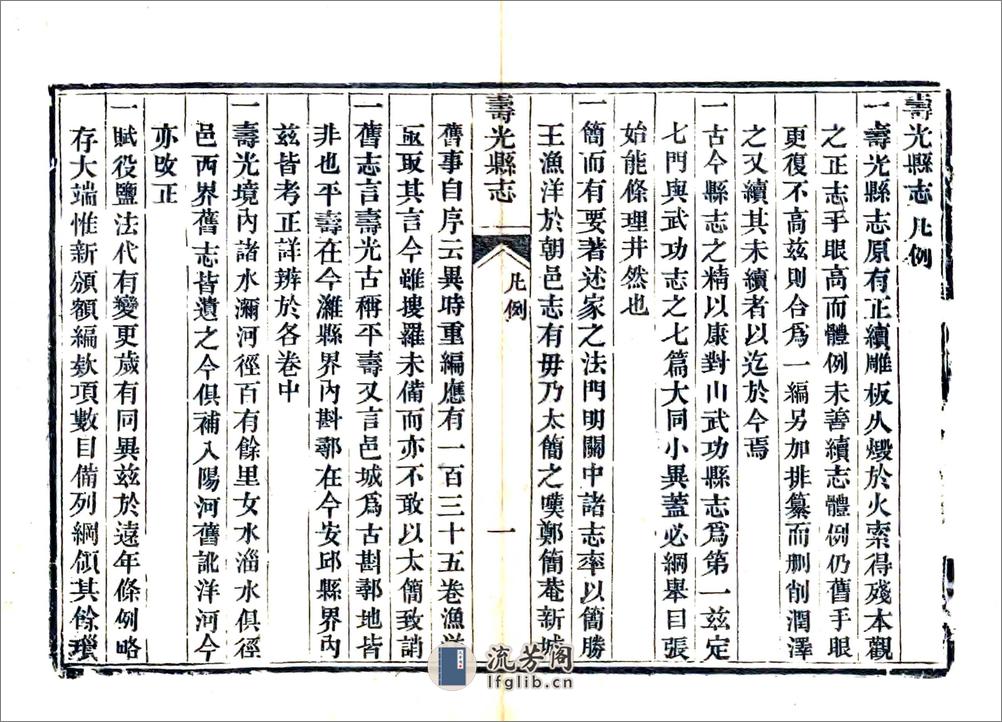 壽光縣志凡例
一壽光縣志原有正續雕板久燬於火索得殘本觀
之正志手眼高而體例未善續志體例仍舊手眼
更復不高茲則合爲一編另加排纂而刪削潤澤
之又續其未續者以迄於今焉
一古今縣志之精以康對山武功縣志爲第一茲定
七門與武功志之七篇大同小異蓋必綱舉目張
始能條理井然也
一簡而有要著述家之法門明關中諸志率以簡勝
王漁洋於朝邑志有毋乃太簡之嘆鄭簡菴新城
壽光縣志
凡例
一
舊事自序云異時重編應有一百三十五卷漁洋
亟取其言今雖搜羅未備而亦不敢以太簡致誚
一舊志言壽光古稱平壽又言邑城爲古斟鄩地皆
非也平壽在今濰縣界內斟鄩在今安邱縣界內
茲皆考正詳辨於各卷中
一壽光境內諸水瀰河徑百有餘里女水淄水俱徑
邑西界舊志皆遺之今俱補入陽河舊訛洋河今
亦改正
一賦役鹽法代有變更歲有同異茲於遠年條例略
存大端惟新頒額編欵項數目備列綱領其餘瑣
流芳阁
lfglib.cn